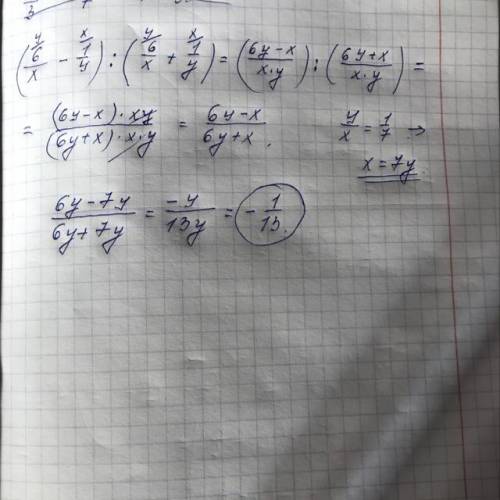 (6/x - 1/y) : (6/x + 1/y) = ((6y-x)/(x·y)) : ((6y+x)/(x·y)) =
= ((6y-x)·xy)/((6y+x)·x·y) = (6y-x)/(6y+x). y/x = 1/7 →
x = 7y
(6y-7y)/(6y+7y) = -y/13y = -1/13.